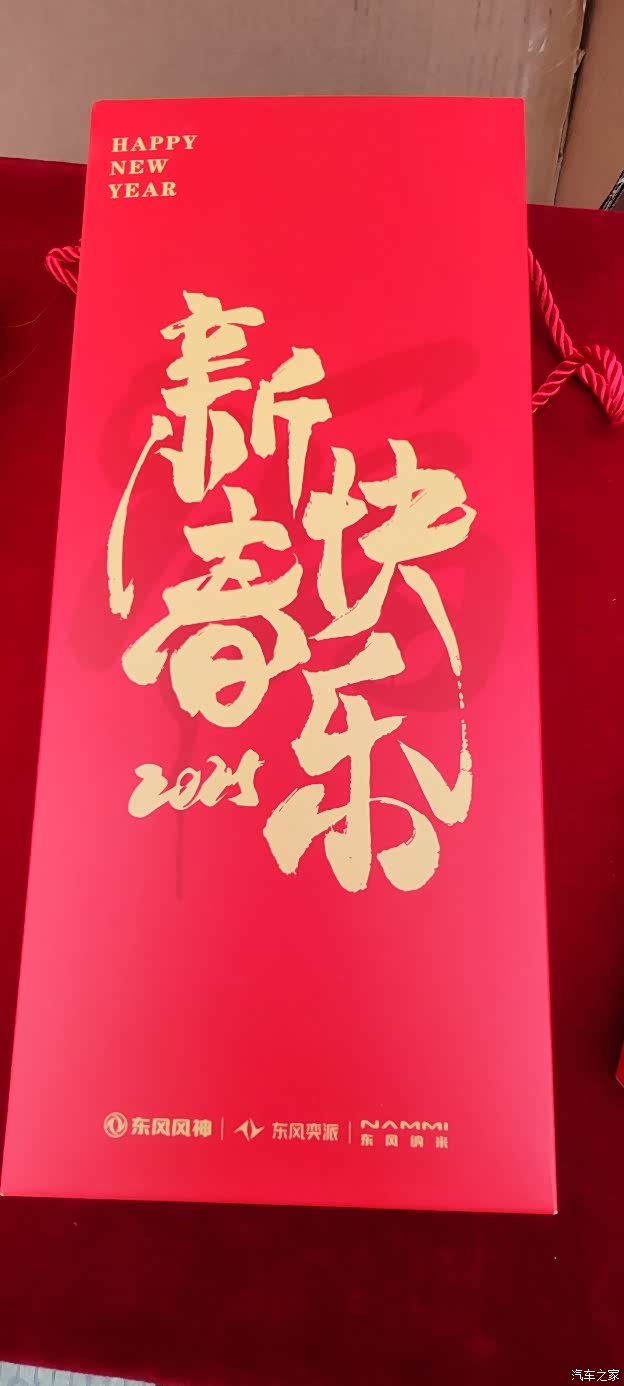 HAPPY
NEW
YEAR
新春
快乐
2025
东风风神 | 东风奕派 | NAMMI
东风纳米
汽车之家